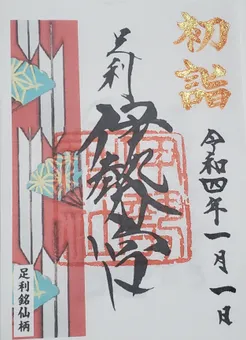 初詣
令和四年一月一日
足利
伊勢宮
足利銘仙柄